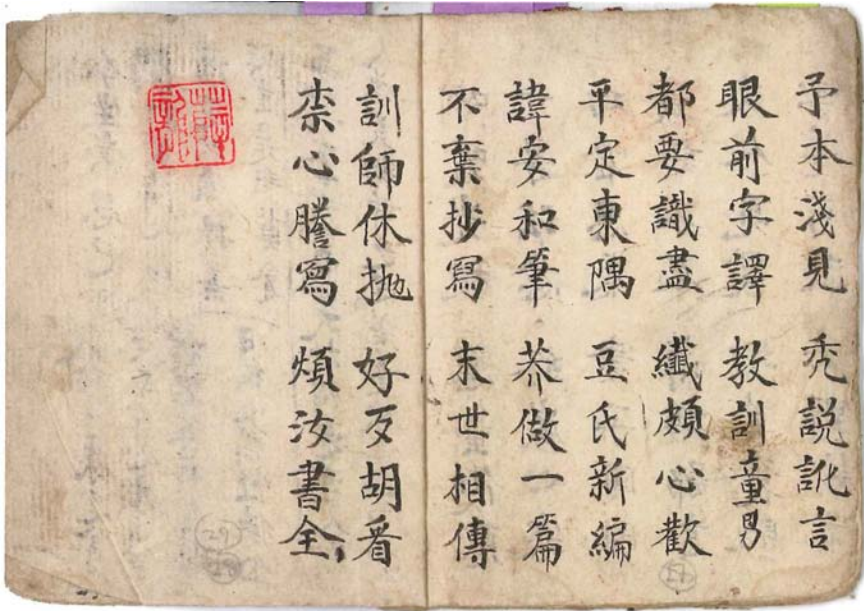 予本淺見 禿說訛言
眼前字譯 教訓童男
都要識盡 纖頗心歡
平定東隅 豆氏新編
諱安和筆 芥做一篇
不棄抄寫 末世相傳
訓師休拋 好歹胡看
柰心謄寫 煩汝書全